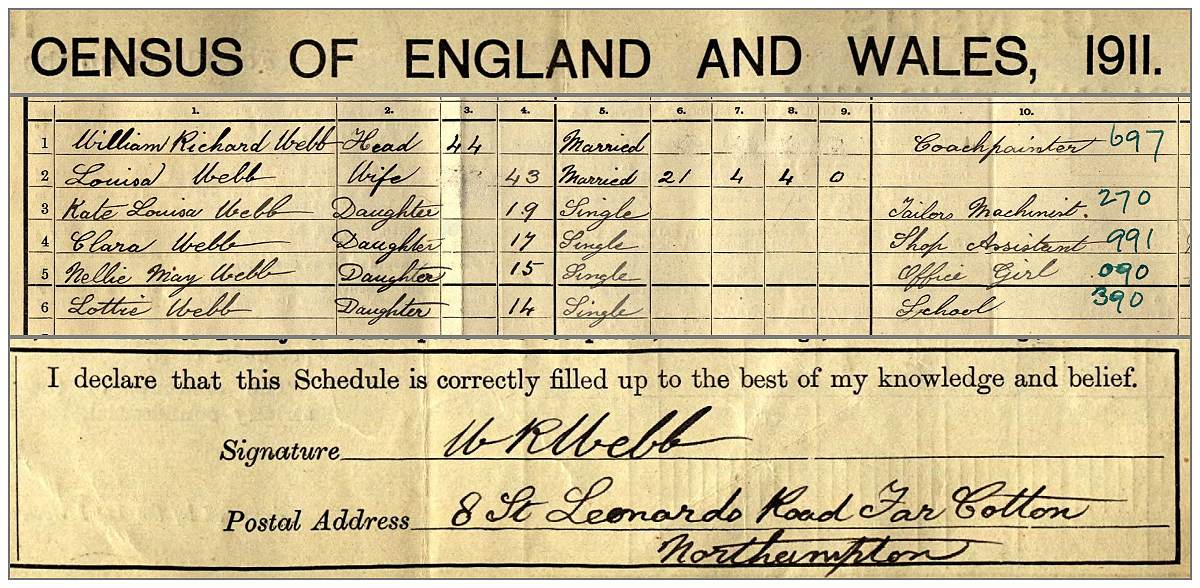 CENSUS OF ENGLAND AND WALES, 1911.
1. 2. 3. 4. 5. 6. 7. 8. 9. 10.
1 William Richard Webb Head 44 Married Coachpainter 697
2 Louisa Webb Wife 43 Married 21 4 4 0
3 Kate Louisa Webb Daughter 19 Single Tailors Machinist. 270
4 Clara Webb Daughter 17 Single Shop Assistant 991
5 Nellie May Webb Daughter 15 Single Office Girl 090
6 Lottie Webb Daughter 14 Single School 390
I declare that this Schedule is correctly filled up to the best of my knowledge and belief.
Signature W R Webb
Postal Address 8 St Leonards Road Far Cotton
Northampton